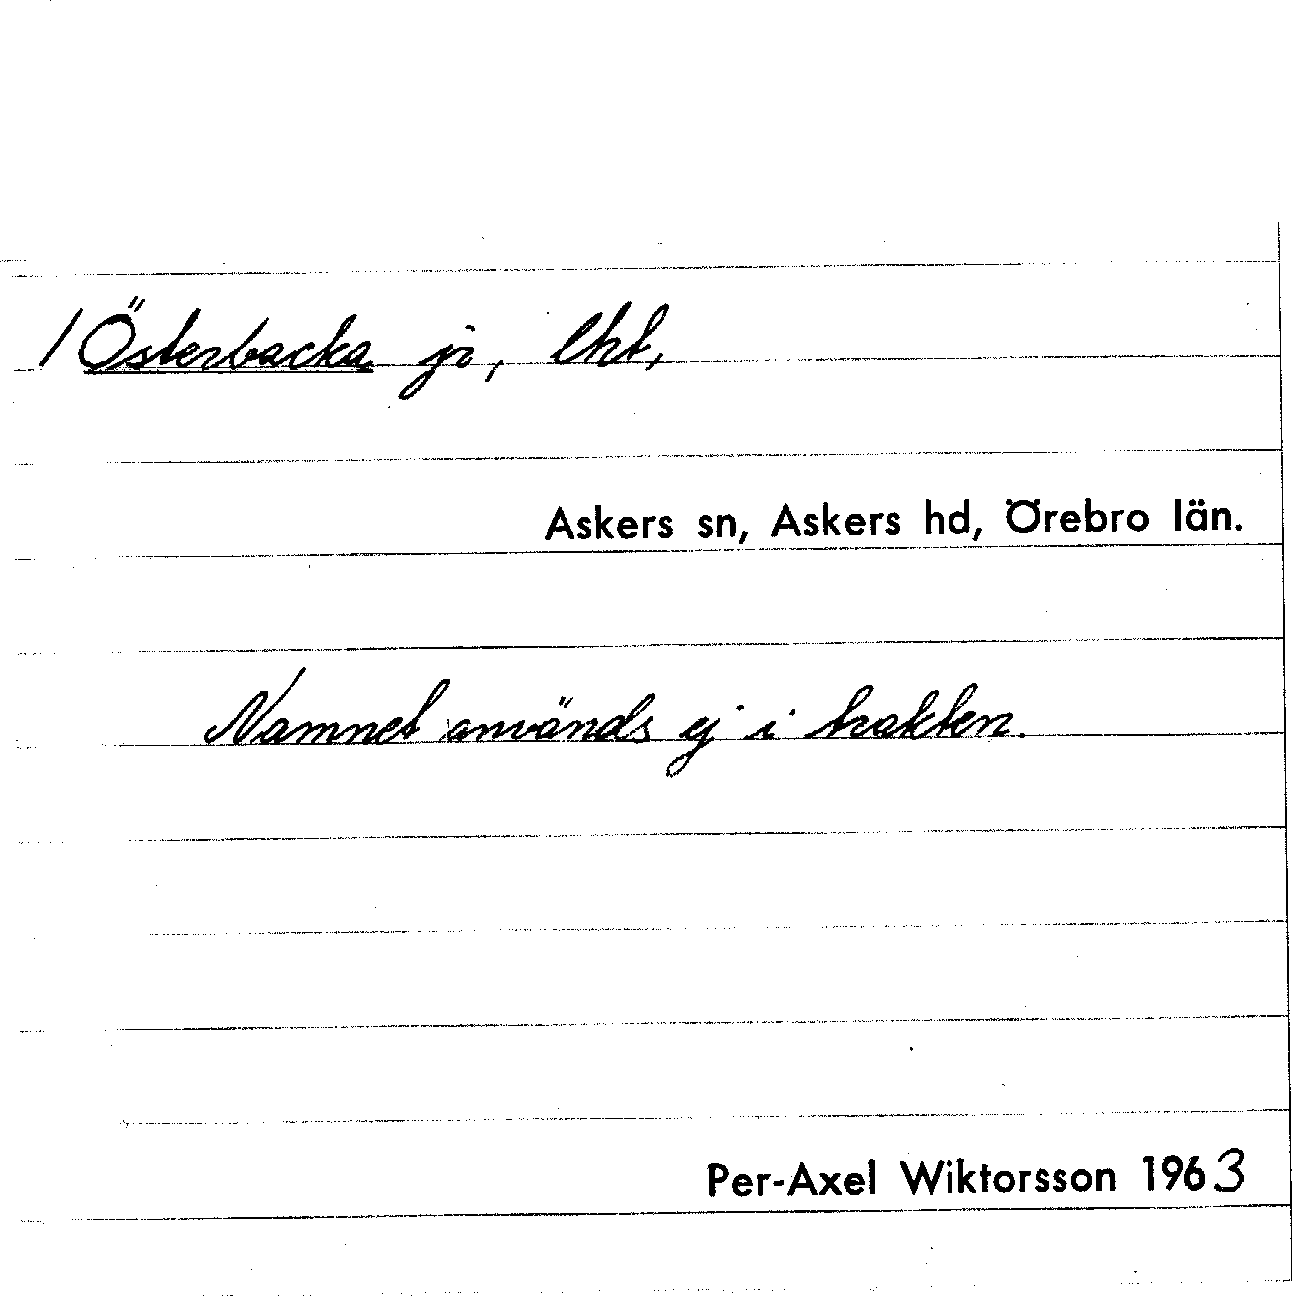 / Österbacka jr, lht,
Askers sn, Askers hd, Örebro län.
Namnet används ej i trakten.
Per-Axel Wiktorsson 1963